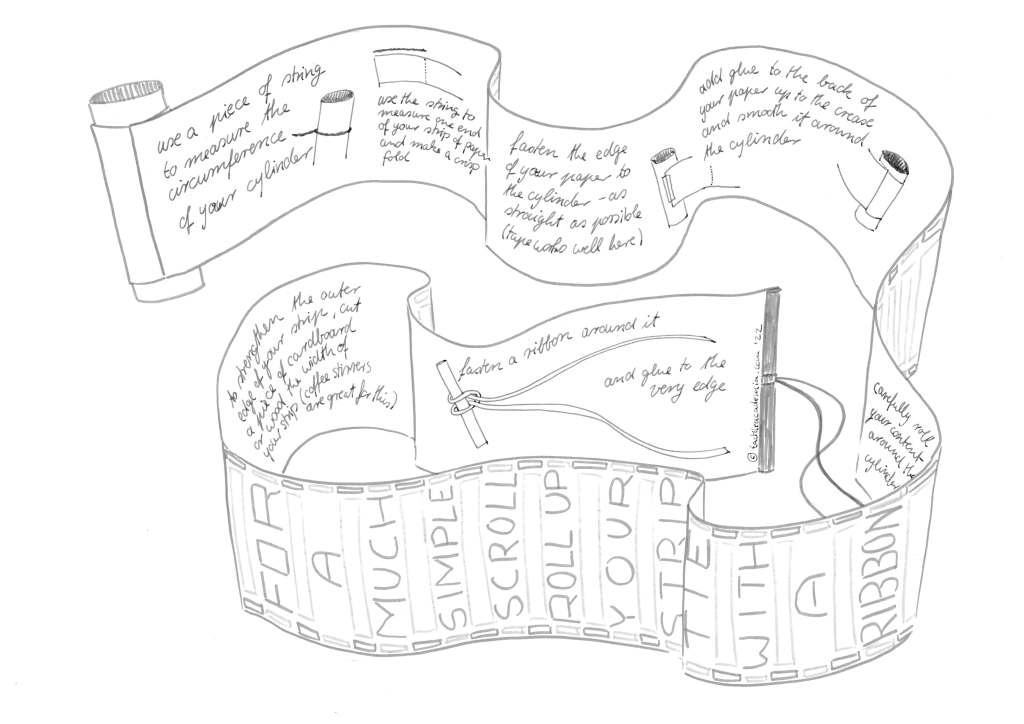 use a piece of string
to measure the
circumference
of your cylinder
use the string to
measure one end
of your strip of paper
and make a crisp
fold
fasten the edge
of your paper to
the cylinder - as
straight as possible
(tape works well here)
add glue to the back of
your paper up to the crease
and smooth it around
the cylinder
carefully roll
your content
around the
cylinder
to strengthen the outer
edge of your strip, cut
a piece of cardboard
or wood the width of
your strip (coffee stirrers
are great for this)
fasten a ribbon around it
and glue to the
very edge
'22
FOR
A
MUCH
SIMPLE
SCROLL
ROLL UP
YOUR
STRIP
TIE
WITH
A
RIBBON